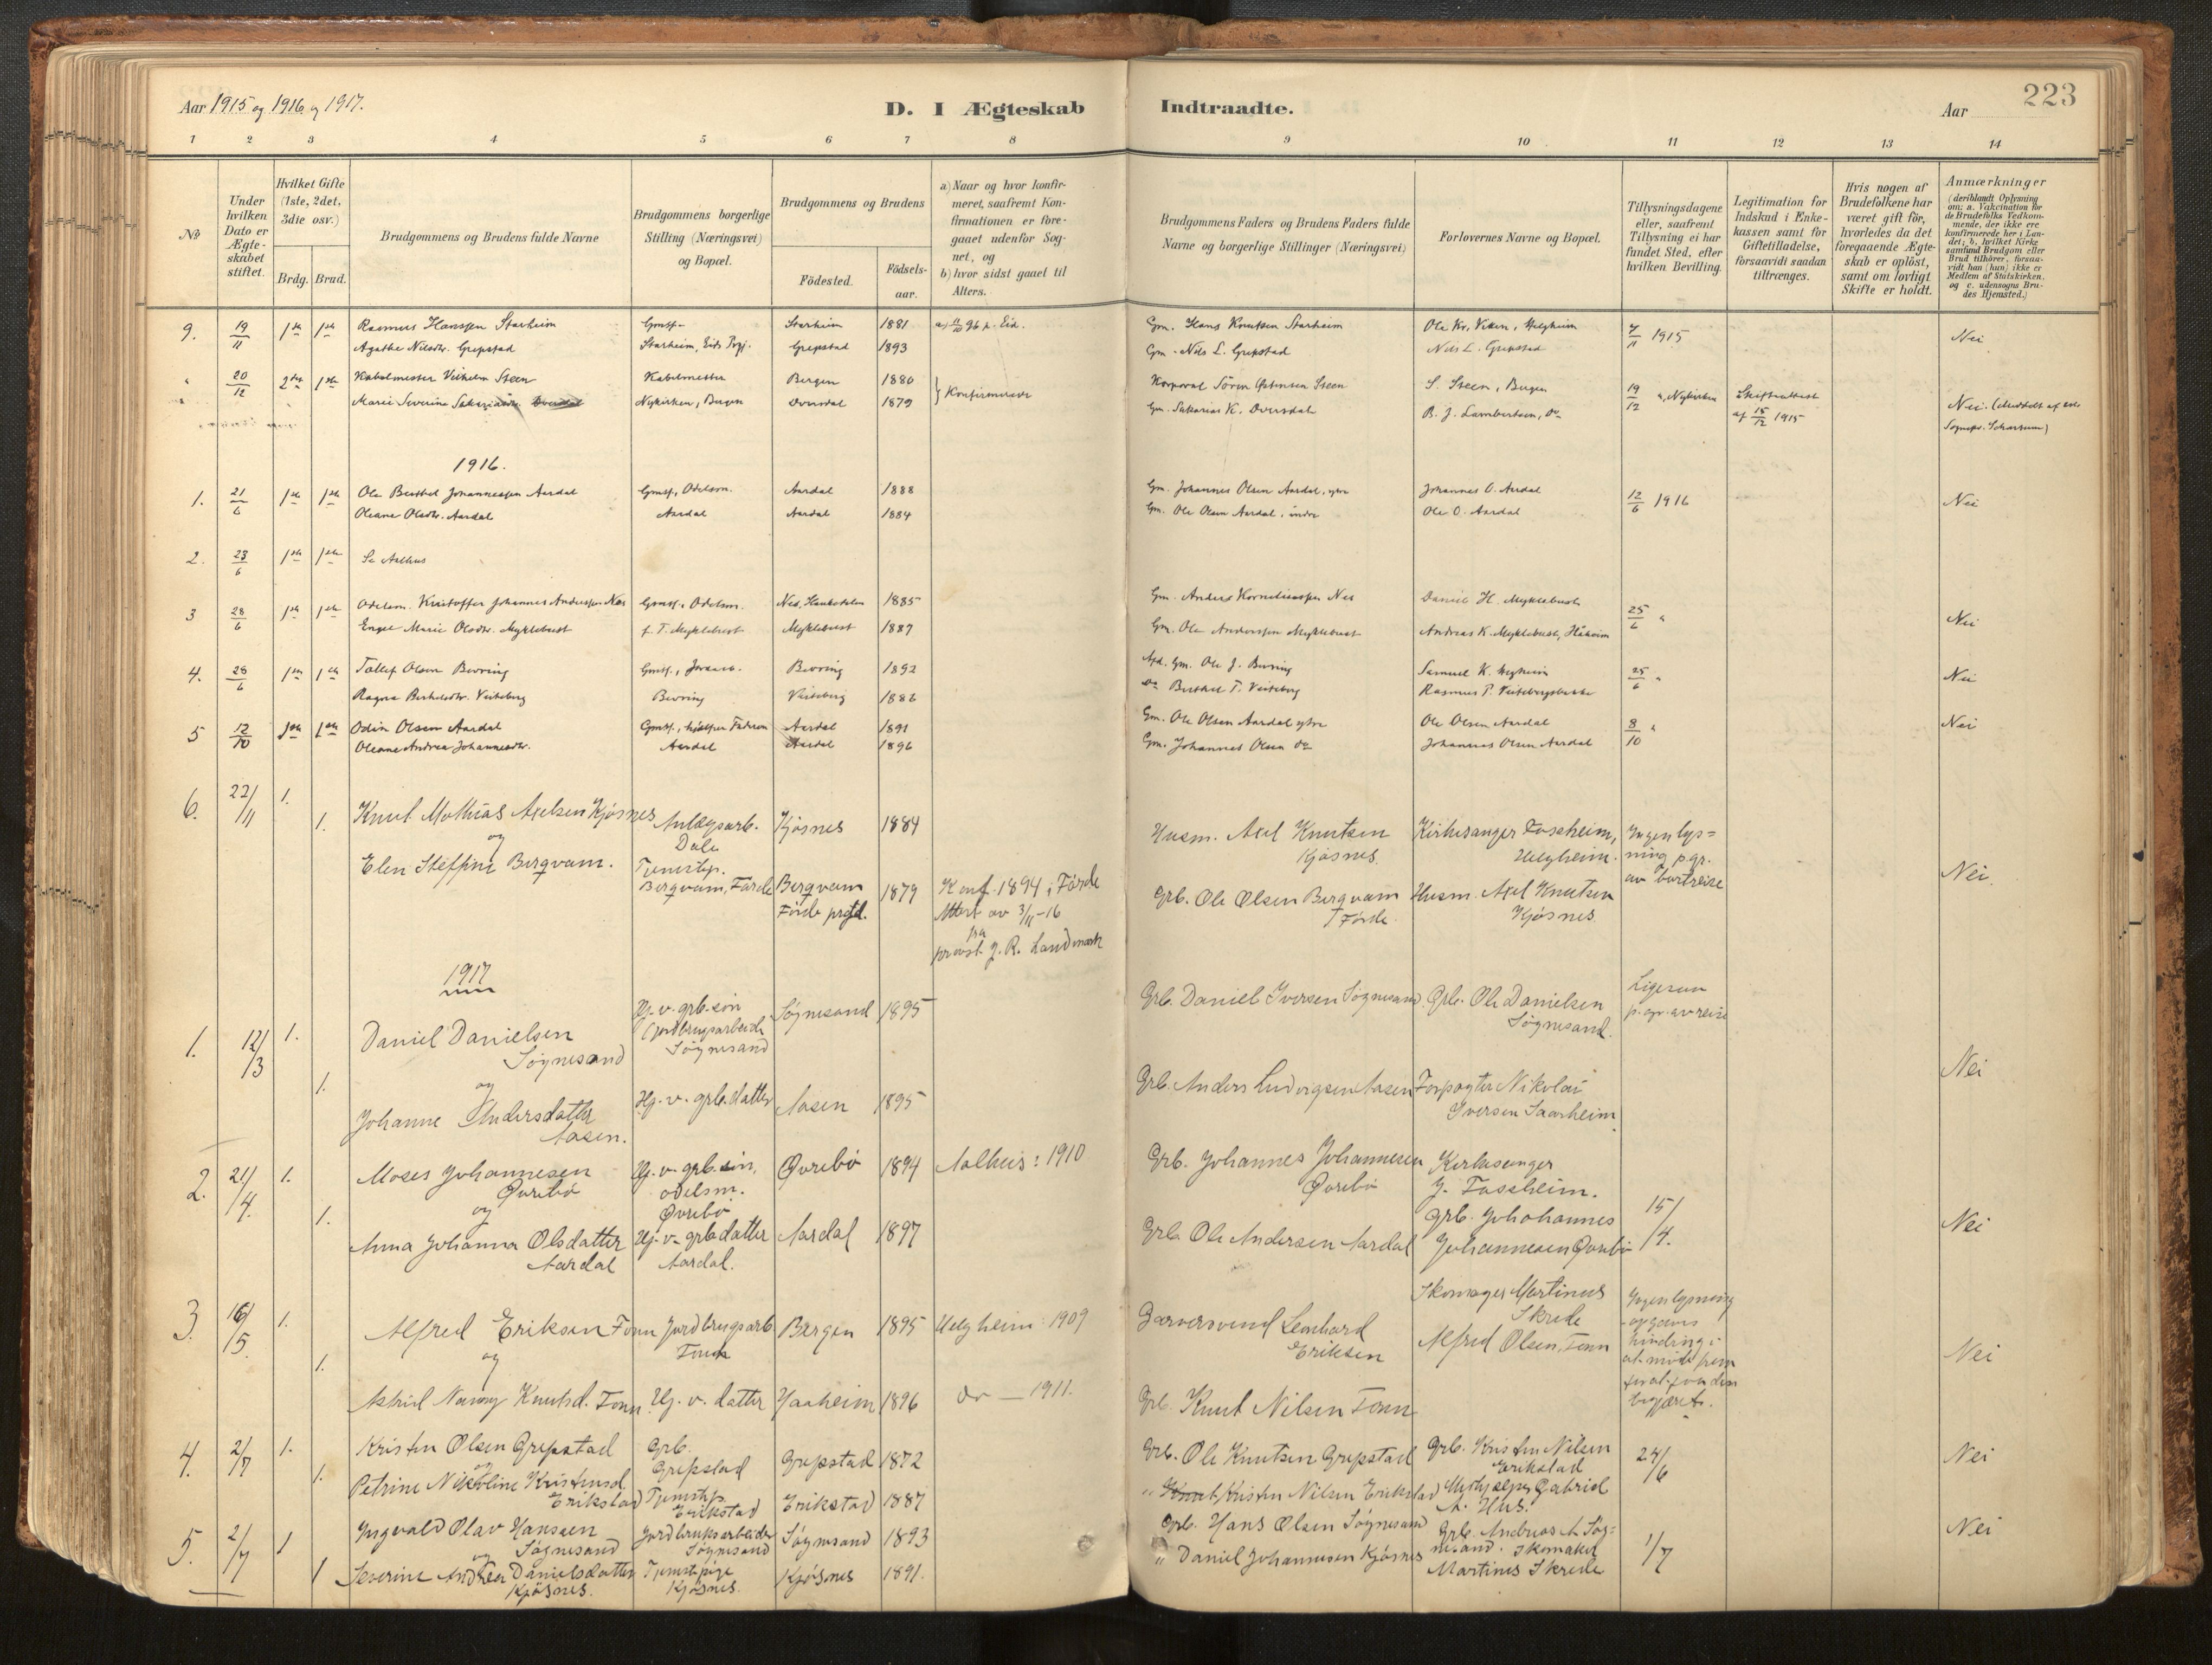 Aar 1915 og 1916 og 1917.
D. I Ægteskab Indtraadte.
Aar
223
1 2 3 4 5 6 7 8 9 10 11 12 13 14
No
Under hvilken Dato er Ægteskabet stiftet.
Hvilket Gifte (1ste, 2det, 3die osv.)
Brdg. Brud.
Brudgommens og Brudens fulde Navne
Brudgommens borgerlige Stilling (Næringsvei) og Bopæl.
Brudgommens og Brudens
Födested.
Födselsaar.
a) Naar og hvor konfirmeret, saafremt Konfirmationen er foregaaet udenfor Sognet, og
b) hvor sidst gaaet til Alters.
Brudgommens Faders og Brudens Faders fulde Navne og borgerlige Stillinger (Næringsvei)
Forlovernes Navne og Bopæl.
Tillysningsdagene eller, saafremt Tillysning ei har fundet Sted, efter hvilken Bevilling.
Legitimation for Indskud i Enkekassen samt for Giftetilladelse, forsaavidt saadan tiltrænges.
Hvis nogen af Brudefolkene har været gift før, hvorledes da det foregaaende Ægteskab er oplöst, samt om lovligt Skifte er holdt.
Anmærkninger (deriblandt Oplysning om: a. Vakcination for de Brudefolks Vedkommende, der ikke ere konfirmerede her i Landet; b. hvilket Kirkesamfund Brudgom eller Brud tilhörer, forsaavidt han (hun) ikke er Medlem af Statskirken. og c. udensogns Brudes Hjemsted.)
9. 19/11 1ste 1ste Rasmus Hanssen Starheim Gmsf. Starheim 1881 Gm. Hans Knutsen Starheim Ole Kr. Viken, Helgheim 7/11 1915 Nei
Agathe Nilsdtr. Grepstad Starheim, Eids Prgj. Grepstad 1893 Gm. Nils L. Grepstad Nils L. Grepstad
20/12 2det 1ste Kabelmester Vilhelm Steen Kabelmester Bergen 1880 } Konfirmerede Korporal Sören Steen S. Steen, Bergen 19/12 ", Nykirken Skifteattest af 15/12 1915
Marie Severine Sakariasdtr. Dvergsdal Nykirken, Bergen 1879 Gm. Sakarias K. B. J. Lambertsen, do Nei.
1916.
1. 21/6 1ste 1ste Ole Berthel Johannessen Aardal Gmsf., Odelsm. Aardal 1888 Gm. Johannes Olsen Aardal, ytre Johannes O. Aardal 12/6 1916 Nei
Oleane Olsdtr. Aardal Aardal Aardal 1884 Gm. Ole Olsen Aardal, indre Ole O. Aardal
2. 23/6 1ste 1ste Se Aalhus
3 28/6 1ste 1ste Odelsm. Kristoffer Johannes Anderssen Nes Gmsf. Odelsm. Nes, Haukedalen 1885 Gm. Anders Korneliussen Nes Daniel H. Myklebust 25/6 " Nei
Engel Marie Olsdtr. Myklebust f. T. Myklebust Myklebust 1887 Gm. Ole Anderssen Myklebust Andreas K. Myklebust,
4. 28/6 1ste 1ste Tollef Olsen Bevring Gmsf., Bevring 1892 Afd. Gm. Ole J. Bevring Samuel K. Helgheim 25/6 " Nei
Ragna Berthelsdtr. Veiteberg Bevring Veiteberg 1886 do Berthel T. Veiteberg Rasmus P. Veitebergsbakke
5 12/10 1ste 1ste Odin Olsen Aardal Gmsf., hjælper Faderen Aardal 1891 Gm. Ole Olsen Aardal ytre Ole Olsen Aardal 8/10 " Nei
Oleane Andrea Johannesdtr. Aardal Aardal 1896 Gm. Johannes Olsen do Johannes Olsen Aardal
6. 22/11 1. 1. Knut Mathias Axelsen Kjøsnes Anlægsarb. Dale Kjøsnes 1884 Husm. Axel Knutsen Kjøsnes Kirkesanger Fossheim, Helgheim. Ingen lysning p.gr. av bortreise
og
Elen Steffine Bergvam. Tjenestp. Bergvam, Førde Bergvam Førde prgjd. 1879 Konf. 1894 i Førde Attest av 3/11-16 fra provst J. R. Landmark Grb. Ole Olsen Bergvam Førde Husm. Axel Knutsen Kjøsnes Nei.
1917
1. 12/3 1. 1. Daniel Danielsen Søgnesand Hj.v. grb.søn (jordbrugsarbeide Søgnesand Søgnesand 1895 Grb. Daniel Iversen Søgnesand Grb. Ole Danielsen Søgnesand. Ligesaa p.gr. av reise
og
Johanne Andersdatter Aasen. Hj.v. grb.datter Aasen 1895 Grb. Anders Ludvigsen Aasen Forpagter Nikolai Iversen Saarheim Nei
2. 21/4. 1. 1. Moses Johannesen Øvrebø Hj.v. grb.søn, odelsm. Øvrebø Øvrebø 1894 Aalhus: 1910 Grb. Johannes Johannesen Øvrebø Kirkesanger J. Fossheim. 15/4.
og
Anna Johanna Olsdatter Aardal Hj.v. grb.datter Aardal. Aardal 1897 Grb. Ole Andersen Aardal Grb. Johohannes Johannesen Øvrebø Nei
3. 16/5. 1. 1. Alfred Eriksen Fonn Jordbrugsarb Fonn Bergen 1895 Helgheim 1909 Garversvend Lenhard Eriksen Skomager Martinus Skrede Ingen lysning opgavs hindring i at møde frem
og
Astrid Nanny Knutsd. Fonn Hj.v. datter Aaheim 1896 do — 1911. Grb. Knut Nilsen Fonn Alfred Olsen, Fonn begjæret. Nei
4. 2/7 1. 1. Kristen Olsen Grepstad Grb. Grepstad Grepstad 1872 Grb. Ole Knutsen Grepstad Grb. Kristen Nilsen Erikstad 24/6 Nei
og
Petrine Nikoline Kristensd. Erikstad Tjenestp. Erikstad Erikstad 1887 " Knut Kristen Nilsen Erikstad Gabriel A. Hus.
5. 2/7 1 1 Ingvald Olav Hanssen Søgnesand Jordbruksarbeider Søgnesand Søgnesand 1893 Grb. Hans Olsen Søgnesand Grb. Andreas A. Søgnesand. 1/7 Nei
og
Severine Andrea Danielsdatter Kjøsnes. Tjenestpige Kjøsnes. Kjøsnes 1891. " Daniel Johannesen Kjøsnes Skomaker Martinus Skrede